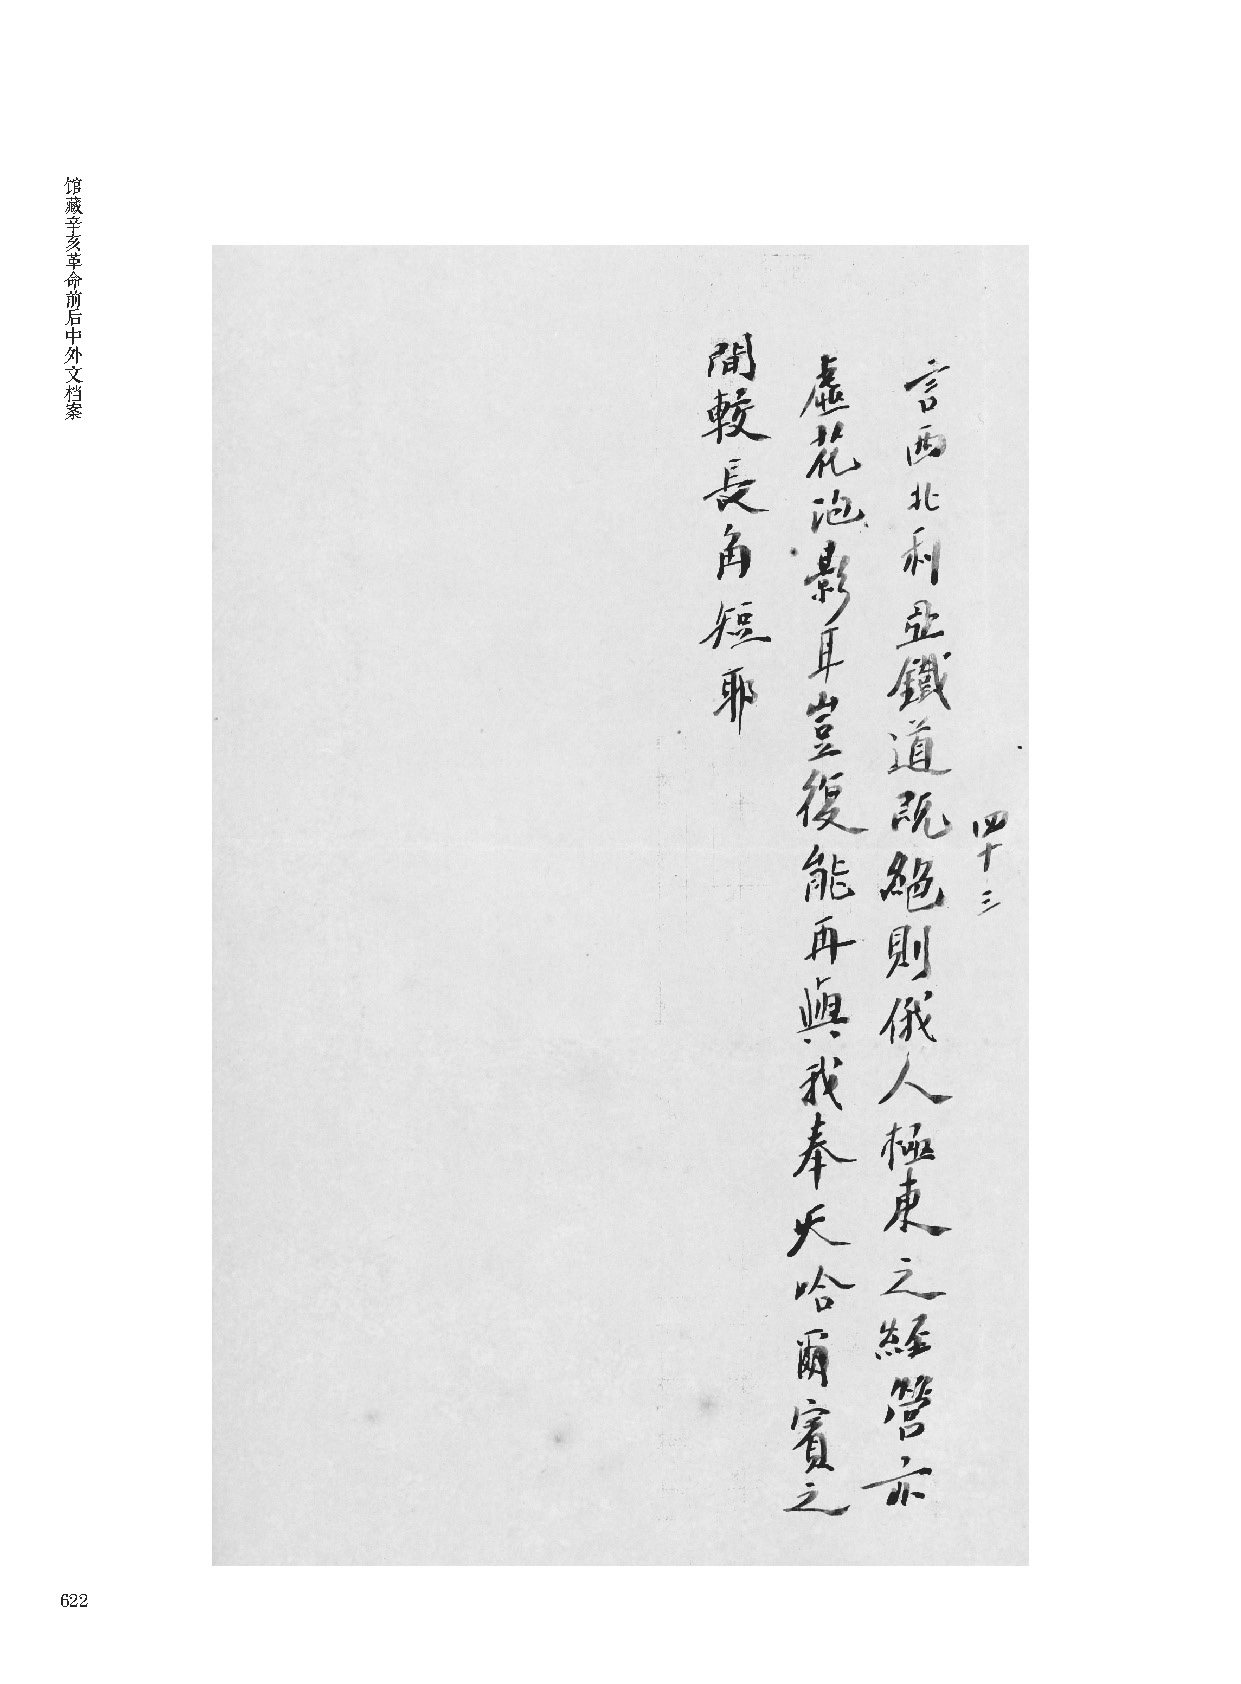 馆藏辛亥革命前后中外文档案
四十三
言西北利亞鐵道既絕則俄人極東之經營亦
虛花泡影耳豈復能再與我奉天哈爾賓之
間較長角短耶
622